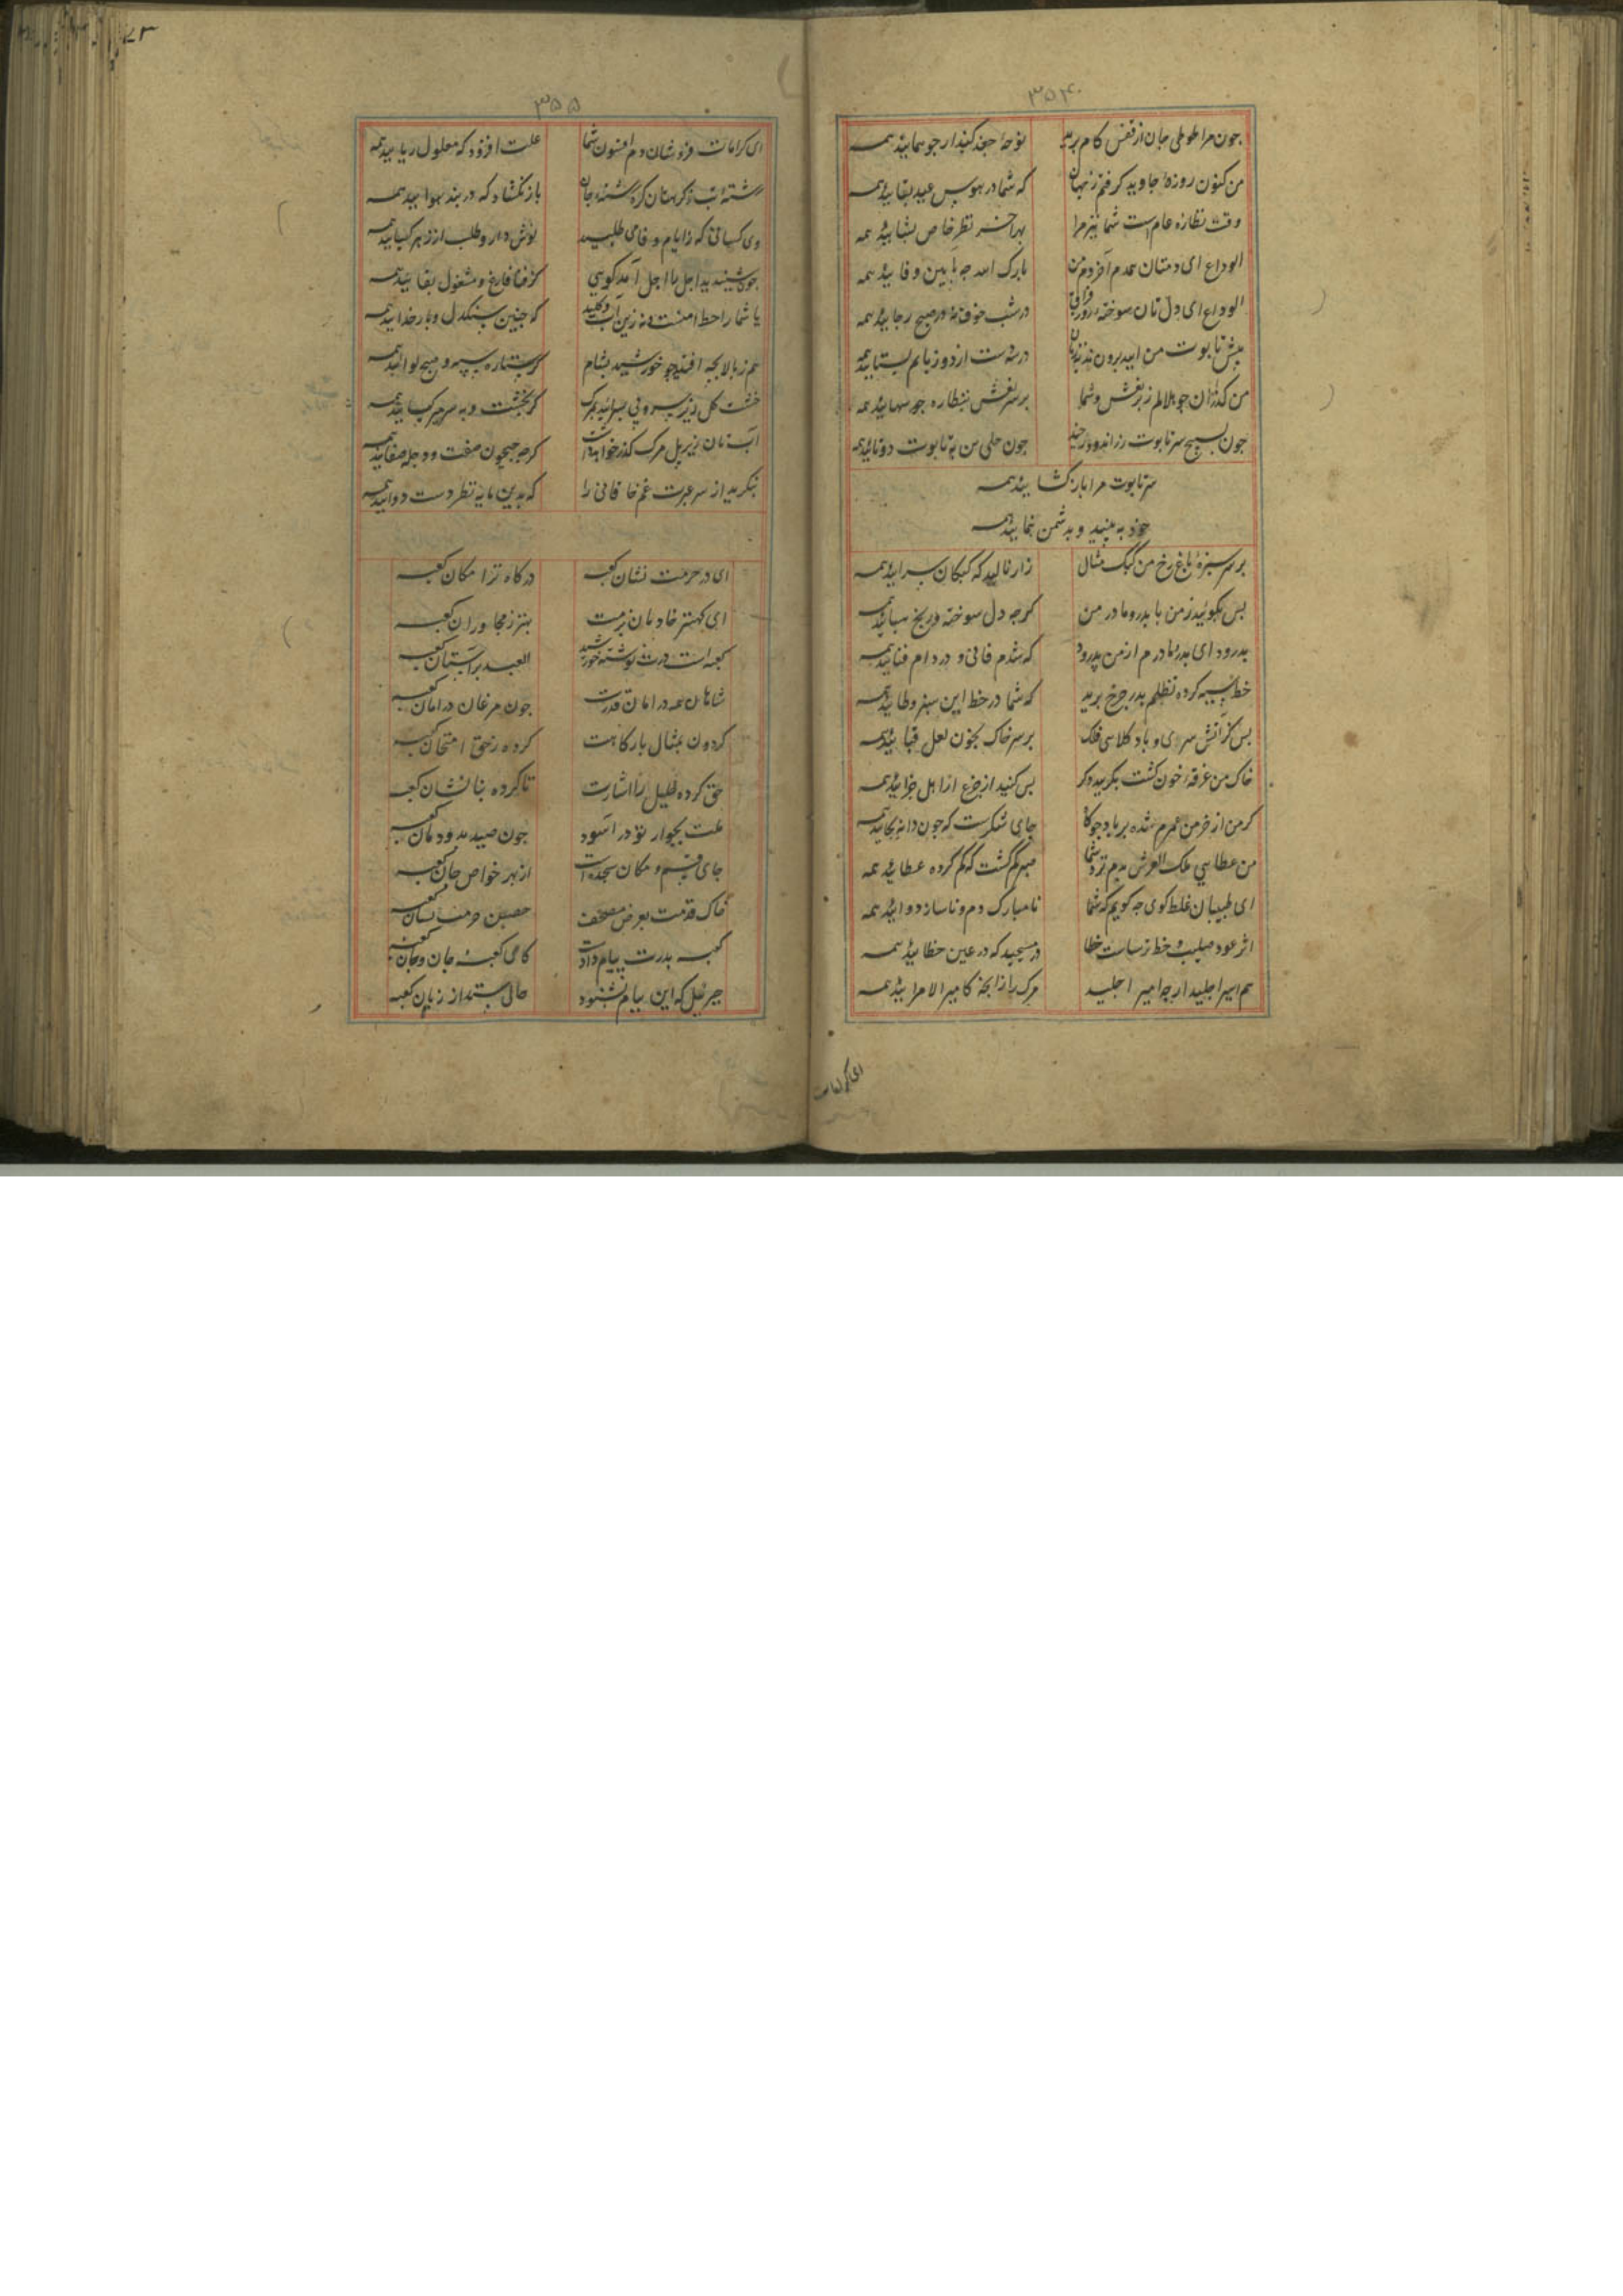 ۳۵۴
چون مرا طوطی جان از قفس کام پرید نوحهٔ جغد کنید ار چو همایید همه
من کنون روزهٔ جاوید گرفتم ز جهان که شما در هوس عید بقایید همه
وقت نظاره عام است شما نیز مرا بهر آخر نظر خاص بیایید همه
الوداع ای دمتان همدم آخر دم من بارک الله چه بایین وفایید همه
الوداع ای دل تان سوخته روز فراق در شب خوف نه در صبح رجایید همه
پیش تابوت من آیید برون ندبه زنان در سه دست از دو زبانم بستایید همه
من گذران چو هلالم ز بر نعش و شما بر سر نعش نظاره چو سهایید همه
چون بسیج سر تابوت زراندود رخید چون حلی بن تابوت دوتایید همه
سر تابوت مرا باز گشایید همه
خود ببینید و بدشمن نمایید همه
بر سر سبزه باغ رخ من کبک مثال زار نالید که کبکان سرایید همه
پس بگویید ز من با پدر و مادر من گرچه دل سوخته در رنج
بدرود ای پدر و مادرم از من بدرود که شدم فانی و در دام فنایید همه
خط سیه کرده تظلم بدر چرخ برید که شما در خط این سبز وطایید همه
پس کز آتش سری و باد کلاهی فلک بر سر خاک بخون لعل قبایید همه
خاک من غرقه خون گشت بگریید دگر بس کنید از جزع ار اهل جزایید همه
گر من از خرمن عمرم شده بر باد چو کاه جای شکرست که چون دانه بجایید همه
من عطایی ملک العرش بدم نزد شما صبرم گم گشت که گم کرده عطایید همه
ای طبیبان غلط گوی چه گویم که شما نامبارک دم و ناساز دوایید همه
اثر عود صلیب و خط ترساست خطا ور مسیحید که در عین خطایید همه
هم اسیر اجلید ار چه امیر اجلید مرگ را زانچه که میر الامرایید همه
ای کرامات
۳۵۵
ای کرامات فروشان دم افسون شما علت افزود که معلول ریایید همه
رشته تب ز گره تان گره رشته جان باز نگشاد که در بند هوایید همه
وی کسانی که ز ایام وفا می طلبید نوش دارو طلب از زهر گیایید همه
چون شنیدید اجل با اجل آمد گویی کز فنا فارغ و مشغول بقایید همه
یا شما را خط امنست و نه زین آب و گلید که چنین سنگدل و بار خدایید همه
هم ز بالا بچه افتید چو خورشید بشام گر ستاره سپه و صبح لوایید همه
خشت گل زیر سر و پی سپر آیید بمرگ گر بخشت و به سپر میر کیایید همه
آبتان زیر پل مرگ گذر خواهد داشت گرچه جیحون صفت و دجله صفایید همه
بنگرید از سر عبرت غم خاقانی را که بدین مایه نظر دست دوایید همه
ای در حرمت نشان کعبه درگاه ترا مکان کعبه
ای کهتر خادمان بزمت بهتر ز مجاوران کعبه
کعبه است درت نوشته خورشید العبد بر آستان کعبه
شاهان همه در امان قدرت چون مرغان در امان کعبه
گردون بمثال بارگاهت کرده ز حق امتحان کعبه
حق کرده خلیل را اشارت تا کرده بنا نشان کعبه
علت بجوار تو در آسود چون صید بدودمان کعبه
جای قسم و مکان سجده است از بهر خواص جان کعبه
خاک قدمت بعرض مصحف حصین حرمتسان کعبه
کعبه بدرت پیام داده است کای کعبه جان و جان کعبه
جبریل که این پیام بشنود حالی بستد از زبان کعبه